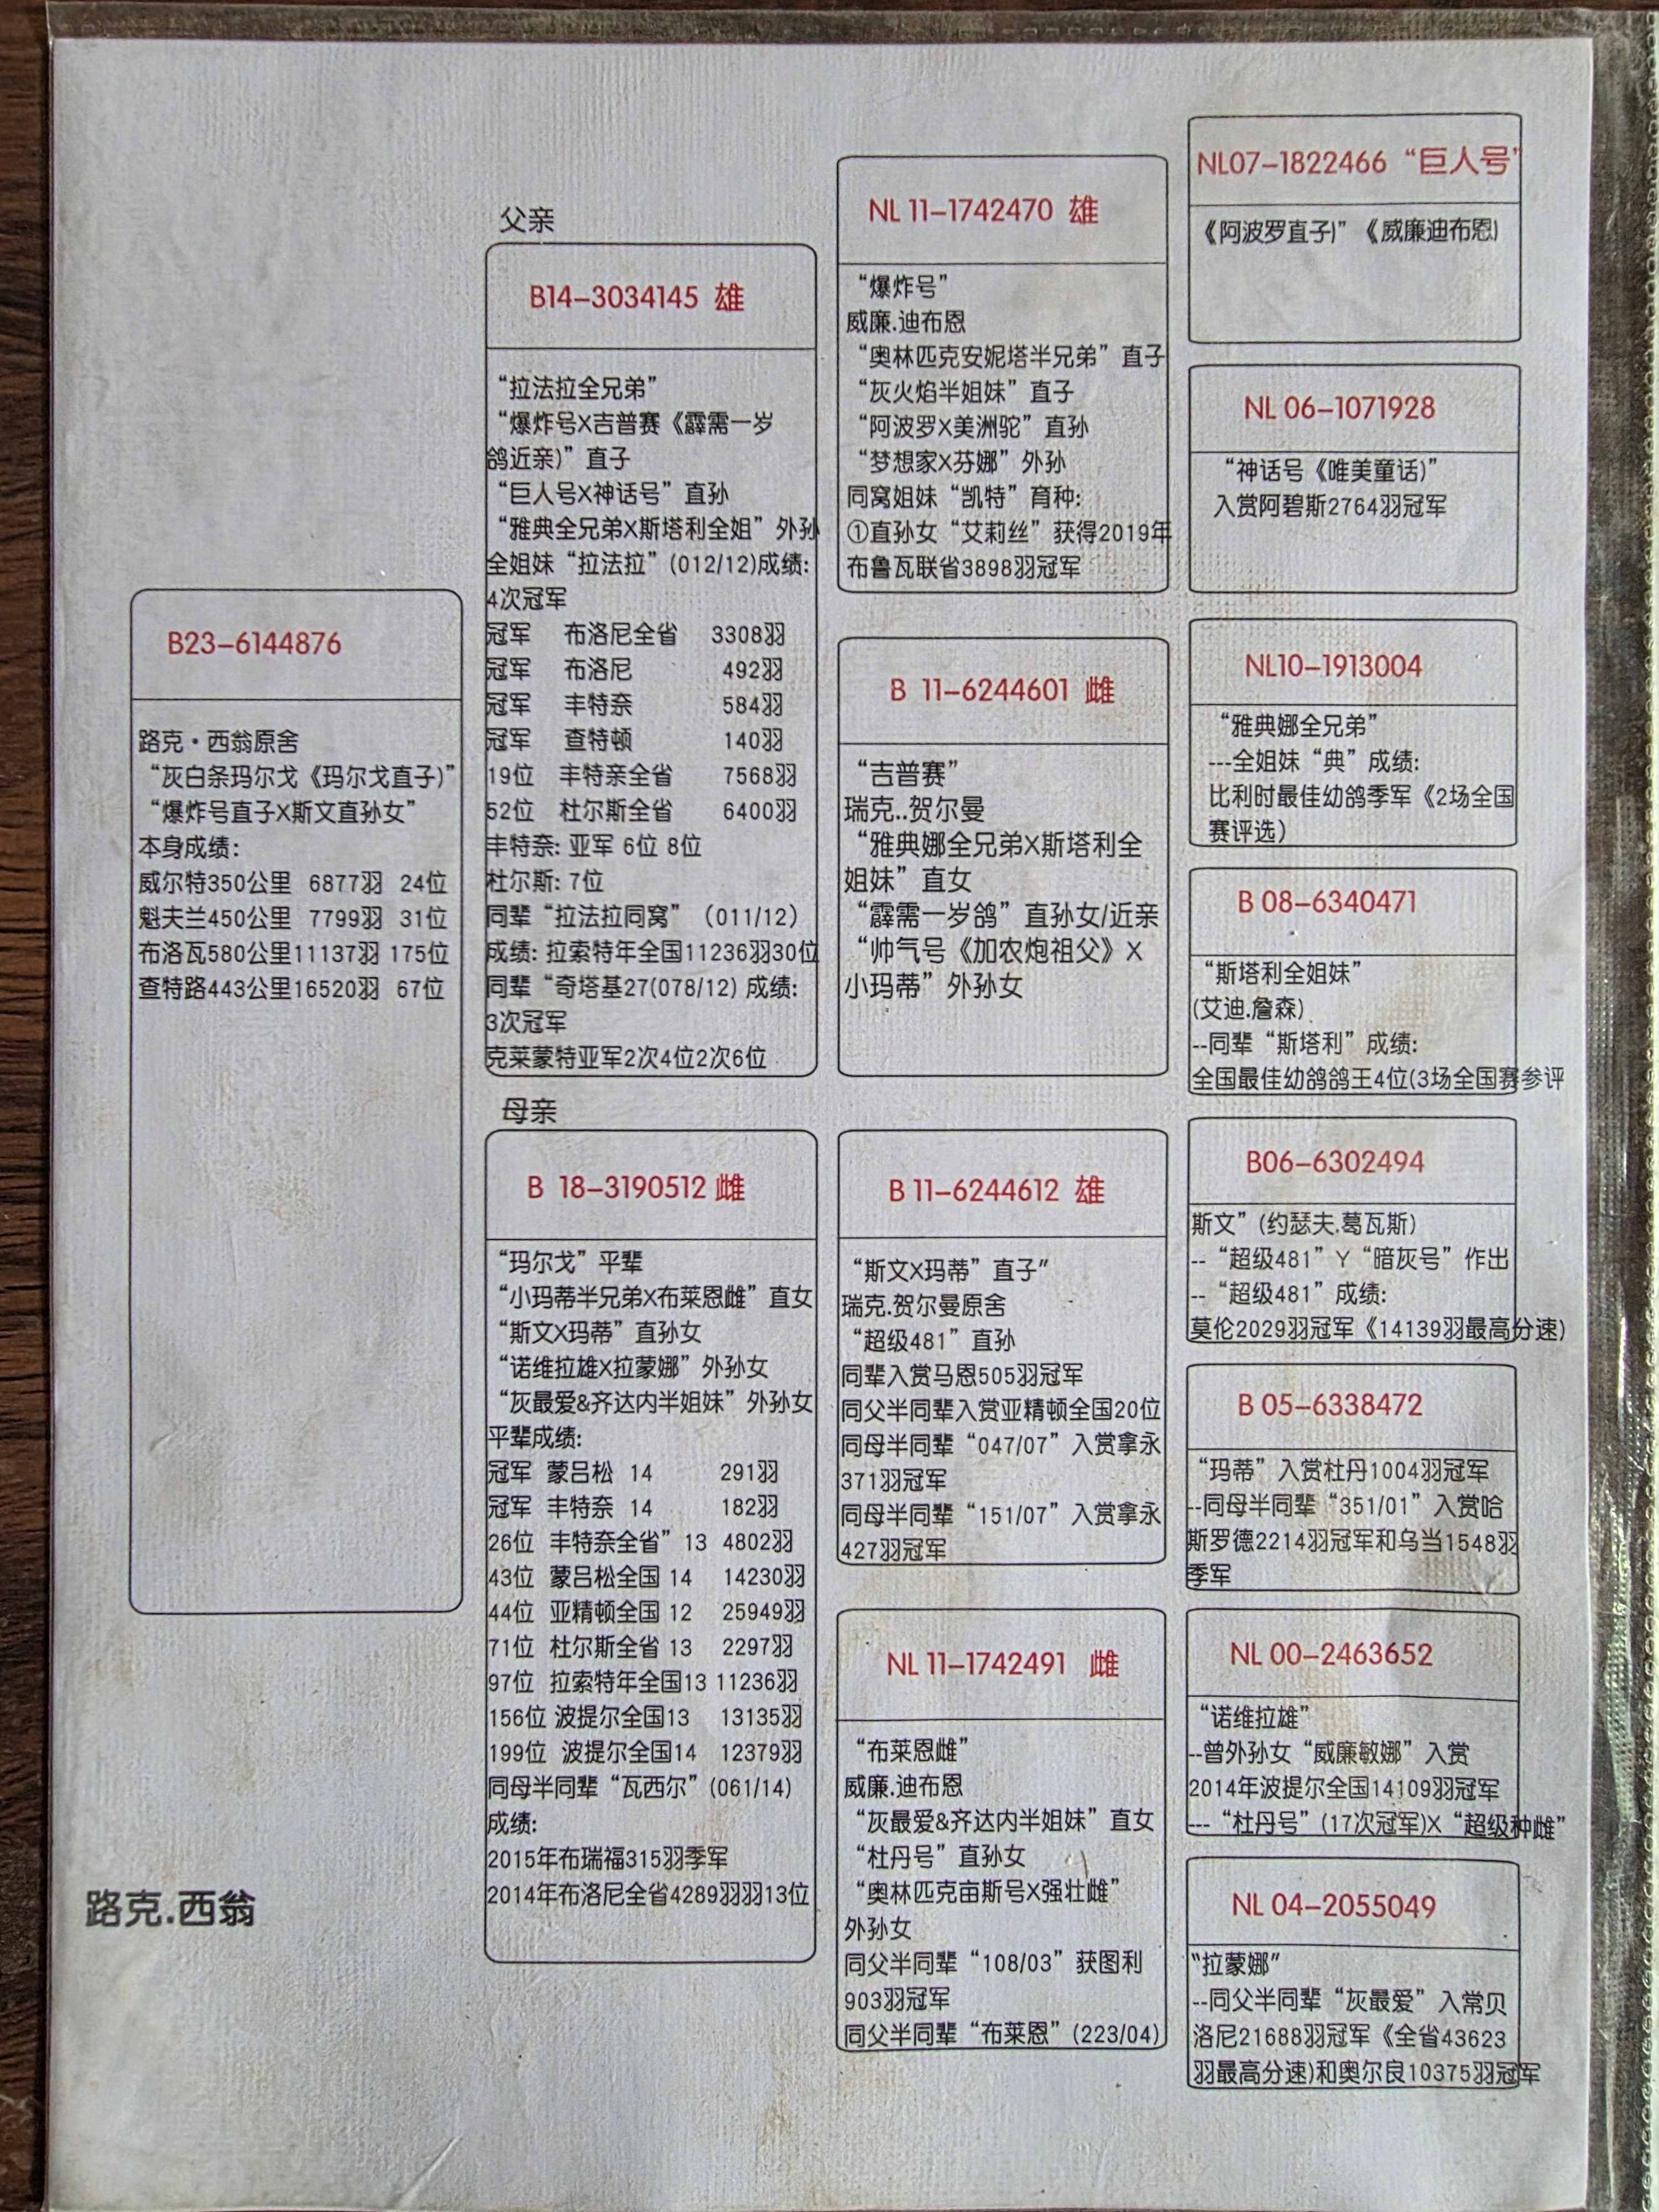 B23-6144876
路克·西翁原舍
“灰白条玛尔戈《玛尔戈直子)”
“爆炸号直子X斯文直孙女”
本身成绩:
威尔特350公里 6877羽 24位
魁夫兰450公里 7799羽 31位
布洛瓦580公里11137羽 175位
查特路443公里16520羽 67位
路克.西翁
父亲
B14-3034145 雄
“拉法拉全兄弟”
“爆炸号X吉普赛《霹需一岁
鸽近亲)”直子
“巨人号X神话号”直孙
“雅典全兄弟X斯塔利全姐”外孙
全姐妹“拉法拉”(012/12)成绩:
4次冠军
冠军 布洛尼全省 3308羽
冠军 布洛尼 492羽
冠军 丰特奈 584羽
冠军 查特顿 140羽
19位 丰特亲全省 7568羽
52位 杜尔斯全省 6400羽
丰特奈: 亚军 6位 8位
杜尔斯: 7位
同辈“拉法拉同窝”（011/12）
成绩: 拉索特年全国11236羽30位
同辈“奇塔基27(078/12) 成绩:
3次冠军
克莱蒙特亚军2次4位2次6位
母亲
B 18-3190512 雌
“玛尔戈”平辈
“小玛蒂半兄弟X布莱恩雌”直女
“斯文X玛蒂”直孙女
“诺维拉雄X拉蒙娜”外孙女
“灰最爱&齐达内半姐妹”外孙女
平辈成绩:
冠军 蒙吕松 14 291羽
冠军 丰特奈 14 182羽
26位 丰特奈全省” 13 4802羽
43位 蒙吕松全国 14 14230羽
44位 亚精顿全国 12 25949羽
71位 杜尔斯全省 13 2297羽
97位 拉索特年全国13 11236羽
156位 波提尔全国13 13135羽
199位 波提尔全国14 12379羽
同母半同辈“瓦西尔”(061/14)
成绩:
2015年布瑞福315羽季军
2014年布洛尼全省4289羽羽13位
NL 11-1742470 雄
“爆炸号”
威廉.迪布恩
“奥林匹克安妮塔半兄弟”直子
“灰火焰半姐妹”直子
“阿波罗X美洲驼”直孙
“梦想家X芬娜”外孙
同窝姐妹“凯特”育种:
①直孙女“艾莉丝”获得2019年
布鲁瓦联省3898羽冠军
B 11-6244601 雌
“吉普赛”
瑞克..贺尔曼
“雅典娜全兄弟X斯塔利全
姐妹”直女
“霹需一岁鸽”直孙女/近亲
“帅气号《加农炮祖父》X
小玛蒂”外孙女
B 11-6244612 雄
“斯文X玛蒂”直子”
瑞克.贺尔曼原舍
“超级481”直孙
同辈入赏马恩505羽冠军
同父半同辈入赏亚精顿全国20位
同母半同辈“047/07”入赏拿永
371羽冠军
同母半同辈“151/07”入赏拿永
427羽冠军
NL 11-1742491 雌
“布莱恩雌”
威廉.迪布恩
“灰最爱&齐达内半姐妹”直女
“杜丹号”直孙女
“奥林匹克亩斯号X强壮雌”
外孙女
同父半同辈“108/03”获图利
903羽冠军
同父半同辈“布莱恩”(223/04)
NL07-1822466 “巨人号”
《阿波罗直子)”《威廉迪布恩)
NL 06-1071928
“神话号《唯美童话)”
入赏阿碧斯2764羽冠军
NL10-1913004
“雅典娜全兄弟”
---全姐妹“典”成绩:
比利时最佳幼鸽季军《2场全国
赛评选）
B 08-6340471
“斯塔利全姐妹”
(艾迪.詹森)
--同辈“斯塔利”成绩:
全国最佳幼鸽鸽王4位(3场全国赛参评
B06-6302494
斯文”(约瑟夫.葛瓦斯)
--“超级481”Y“暗灰号”作出
--“超级481”成绩:
莫伦2029羽冠军《14139羽最高分速)
B 05-6338472
“玛蒂”入赏杜丹1004羽冠军
--同母半同辈“351/01”入赏哈
斯罗德2214羽冠军和乌当1548羽
季军
NL 00-2463652
“诺维拉雄”
--曾外孙女“威廉敏娜”入赏
2014年波提尔全国14109羽冠军
---“杜丹号”(17次冠军)X“超级种雌”
NL 04-2055049
“拉蒙娜”
--同父半同辈“灰最爱”入常贝
洛尼21688羽冠军《全省43623
羽最高分速)和奥尔良10375羽冠军